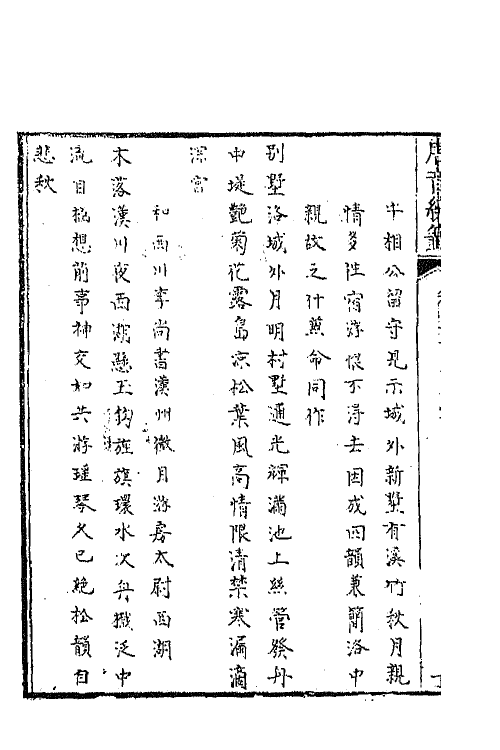 唐音統籤
牛相公留守見示城外新墅有溪竹秋月親
情多往宿游恨不得去因成四韻兼簡洛中
親故之什兼命同作
別墅洛城外月明村墅通光輝滿池上絲管發舟
中堤艷菊花露島凉松葉風高情限清禁寒漏滴
深宮
和西川李尚書漢州微月游房太尉西湖
木落漢川夜西湖懸玉鉤旌旗環水次舟檝泛中
流目極想前事神交如共游瑤琴久已絶松韻自
悲秋